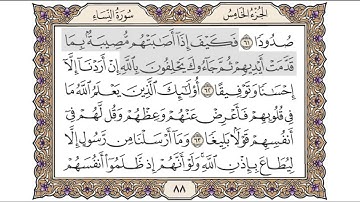 الجزء الخامس
سورة النساء
صُدُودًا ٦١ فَكَيْفَ إِذَا أَصَابَتْهُم مُّصِيبَةٌ بِمَا
قَدَّمَتْ أَيْدِيهِمْ ثُمَّ جَاءُوكَ يَحْلِفُونَ بِاللَّهِ إِنْ أَرَدْنَا إِلَّا
إِحْسَانًا وَتَوْفِيقًا ٦٢ أُولَٰئِكَ الَّذِينَ يَعْلَمُ اللَّهُ مَا
فِي قُلُوبِهِمْ فَأَعْرِضْ عَنْهُمْ وَعِظْهُمْ وَقُل لَّهُمْ فِي
أَنفُسِهِمْ قَوْلًا بَلِيغًا ٦٣ وَمَا أَرْسَلْنَا مِن رَّسُولٍ إِلَّا
لِيُطَاعَ بِإِذْنِ اللَّهِ وَلَوْ أَنَّهُمْ إِذ ظَّلَمُوا أَنفُسَهُمْ
٨٨